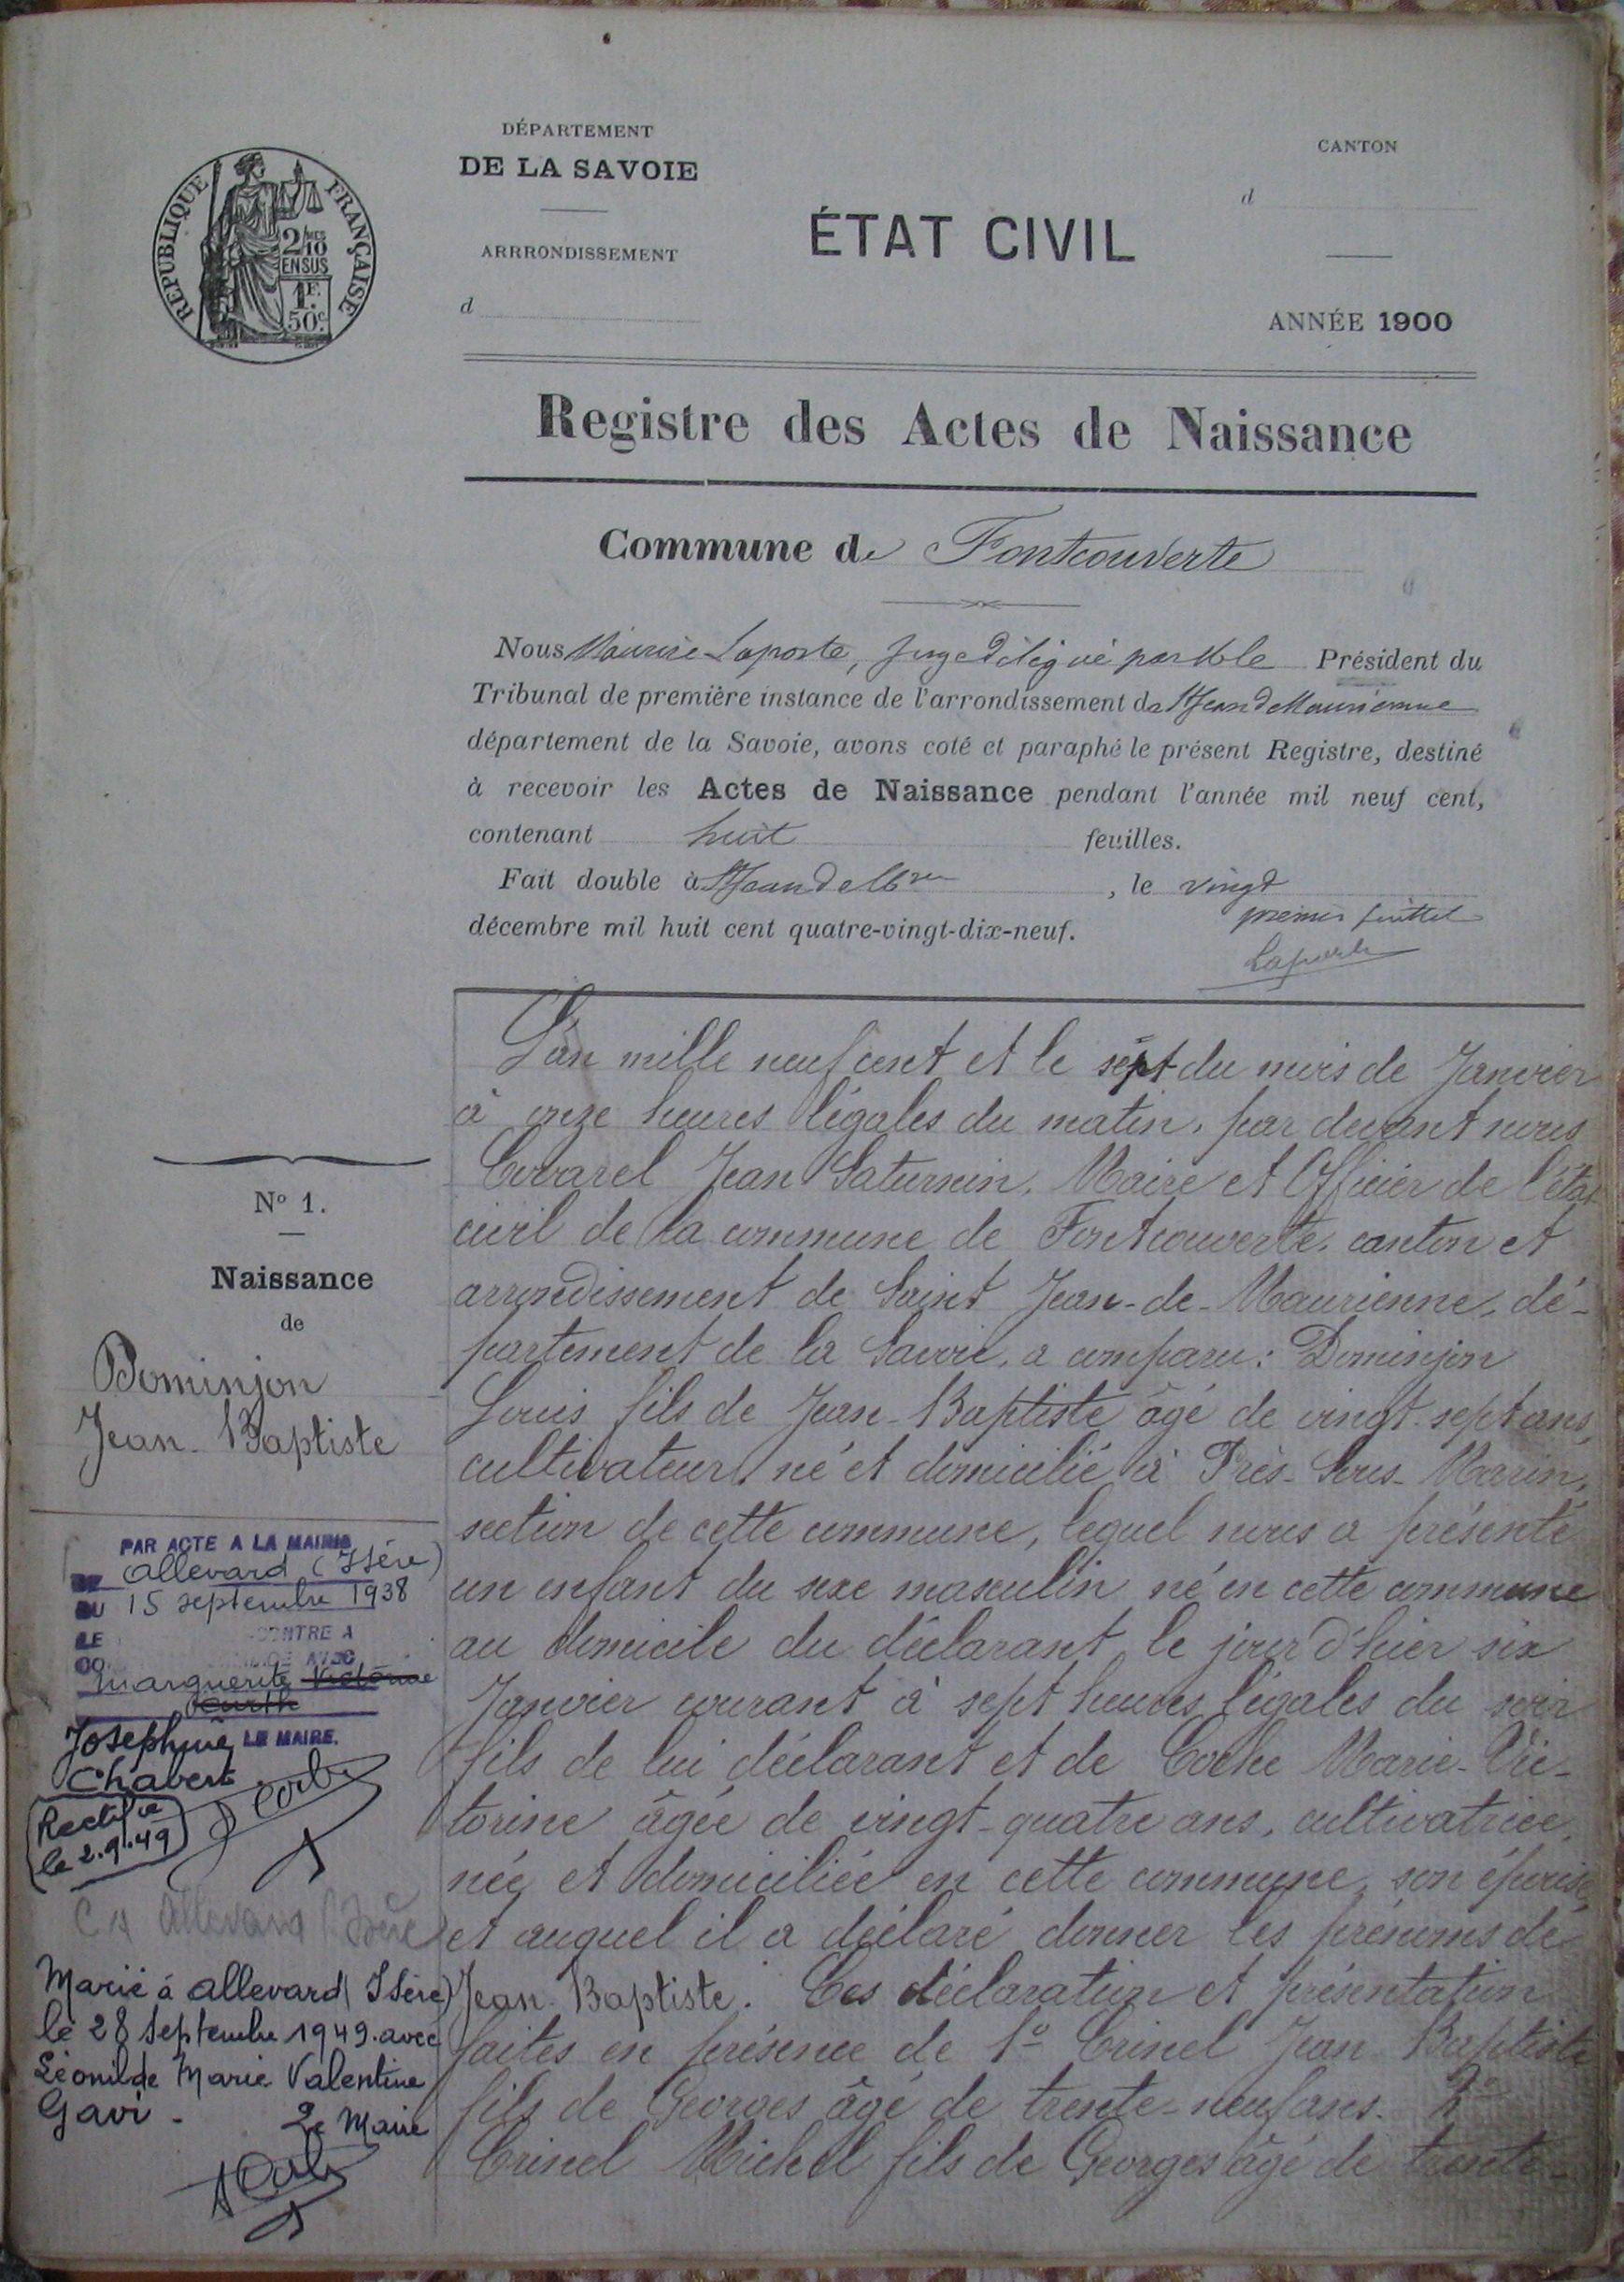 DÉPARTEMENT
DE LA SAVOIE
ARRRONDISSEMENT
d
RÉPUBLIQUE FRANÇAISE
2/10 MES
EN SUS
1F.
50c.
ÉTAT CIVIL
CANTON
d
ANNÉE 1900
Registre des Actes de Naissance
Commune de Fontcouverte
Nous Maurice Laporte, juge délégué par Mr le Président du
Tribunal de première instance de l'arrondissement de St Jean de Maurienne
département de la Savoie, avons coté et paraphé le présent Registre, destiné
à recevoir les Actes de Naissance pendant l'année mil neuf cent,
contenant huit feuilles.
Fait double à St Jean de Mne, le vingt
décembre mil huit cent quatre-vingt-dix-neuf.
premier feuillet
Laporte
N° 1.
Naissance
de
Dominjon
Jean-Baptiste
PAR ACTE A LA MAIRIE
DE Allevard (Isère)
DU 15 septembre 1938
LE CONTRE A
AVEC
Marguerite Victorine
Josephine LE MAIRE.
Chabert
Rectifié
le 2.9.49
Allevard Isère
Marié à Allevard (Isère)
le 28 Septembre 1949. avec
Léonilde Marie Valentine
Gavi.
Le Maire
L'an mille neuf cent et le sept du mois de Janvier
à onze heures légales du matin, par devant nous
Covarel Jean Saturnin, Maire et Officier de l'état
civil de la commune de Fontcouverte, canton et
arrondissement de Saint Jean-de-Maurienne, dé-
partement de la Savoie, a comparu: Dominjon
Louis fils de Jean-Baptiste âgé de vingt-sept ans,
cultivateur, né et domicilié à Près-Sous-Marin,
section de cette commune, lequel nous a présenté
un enfant du sexe masculin né en cette commune
au domicile du déclarant, le jour d'hier six
Janvier courant à sept heures légales du soir
fils de lui déclarant et de Coche Marie-Vic-
torine âgée de vingt-quatre ans, cultivatrice,
née et domiciliée en cette commune, son épouse,
et auquel il a déclaré donner les prénoms de
Jean-Baptiste. Ces déclaration et présentation
faites en présence de 1° Crinel Jean Baptiste
fils de Georges âgé de trente-neuf ans. 2°
Crinel Michel fils de Georges âgé de trente-